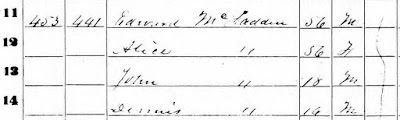 11 453 441 Edward McFadden 56 M
12 Alice " 56 F
13 John " 18 M
14 Dennis " 14 M